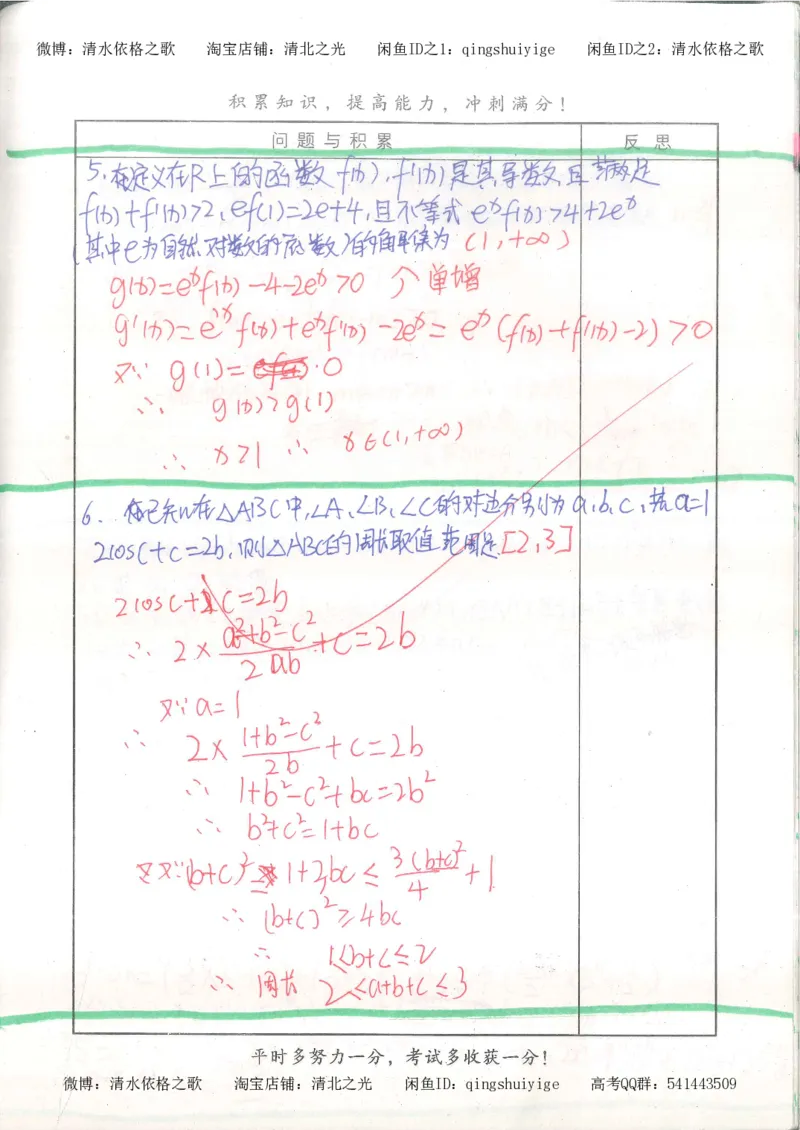 微博：清水依格之歌 淘宝店铺：清北之光 闲鱼ID之1：qingshuiyige 闲鱼ID之2：清水依格之歌
积累知识，提高能力，冲刺满分！
问题与积累 反思
5. 在定义在R上的函数f(x), f'(x)是其导数,且满足
f(x)+f'(x)>2, ef(1)=2e+4,且不等式 e^x f(x)>4+2e^x
(其中e为自然对数的底数)的解集为 (1,+∞)
g(x)=e^x f(x)-4-2e^x>0 个 单增
g'(x)=e^x f(x)+e^x f'(x)-2e^x=e^x(f(x)+f'(x)-2)>0
又∵ g(1)=0
∴ g(x)>g(1)
∴ x>1 ∴ x∈(1,+∞)
6. 已知在△ABC中,∠A、∠B、∠C的对边分别为a,b,c,若a=1
2cosC+c=2b,则△ABC的周长取值范围是[2,3]
2cosC+c=2b
∴ 2×(a²+b²-c²)/(2ab)+c=2b
又∵a=1
∴ 2×(1+b²-c²)/(2b)+c=2b
∴ 1+b²-c²+bc=2b²
∴ b²+c²=1+bc
又∵(b+c)²=1+3bc≤3(b+c)²/4+1
∴ (b+c)²≥4bc
∴ 1<b+c≤2
∴ 周长 2<a+b+c≤3
平时多努力一分，考试多收获一分！
微博：清水依格之歌 淘宝店铺：清北之光 闲鱼ID：qingshuiyige 高考QQ群：541443509